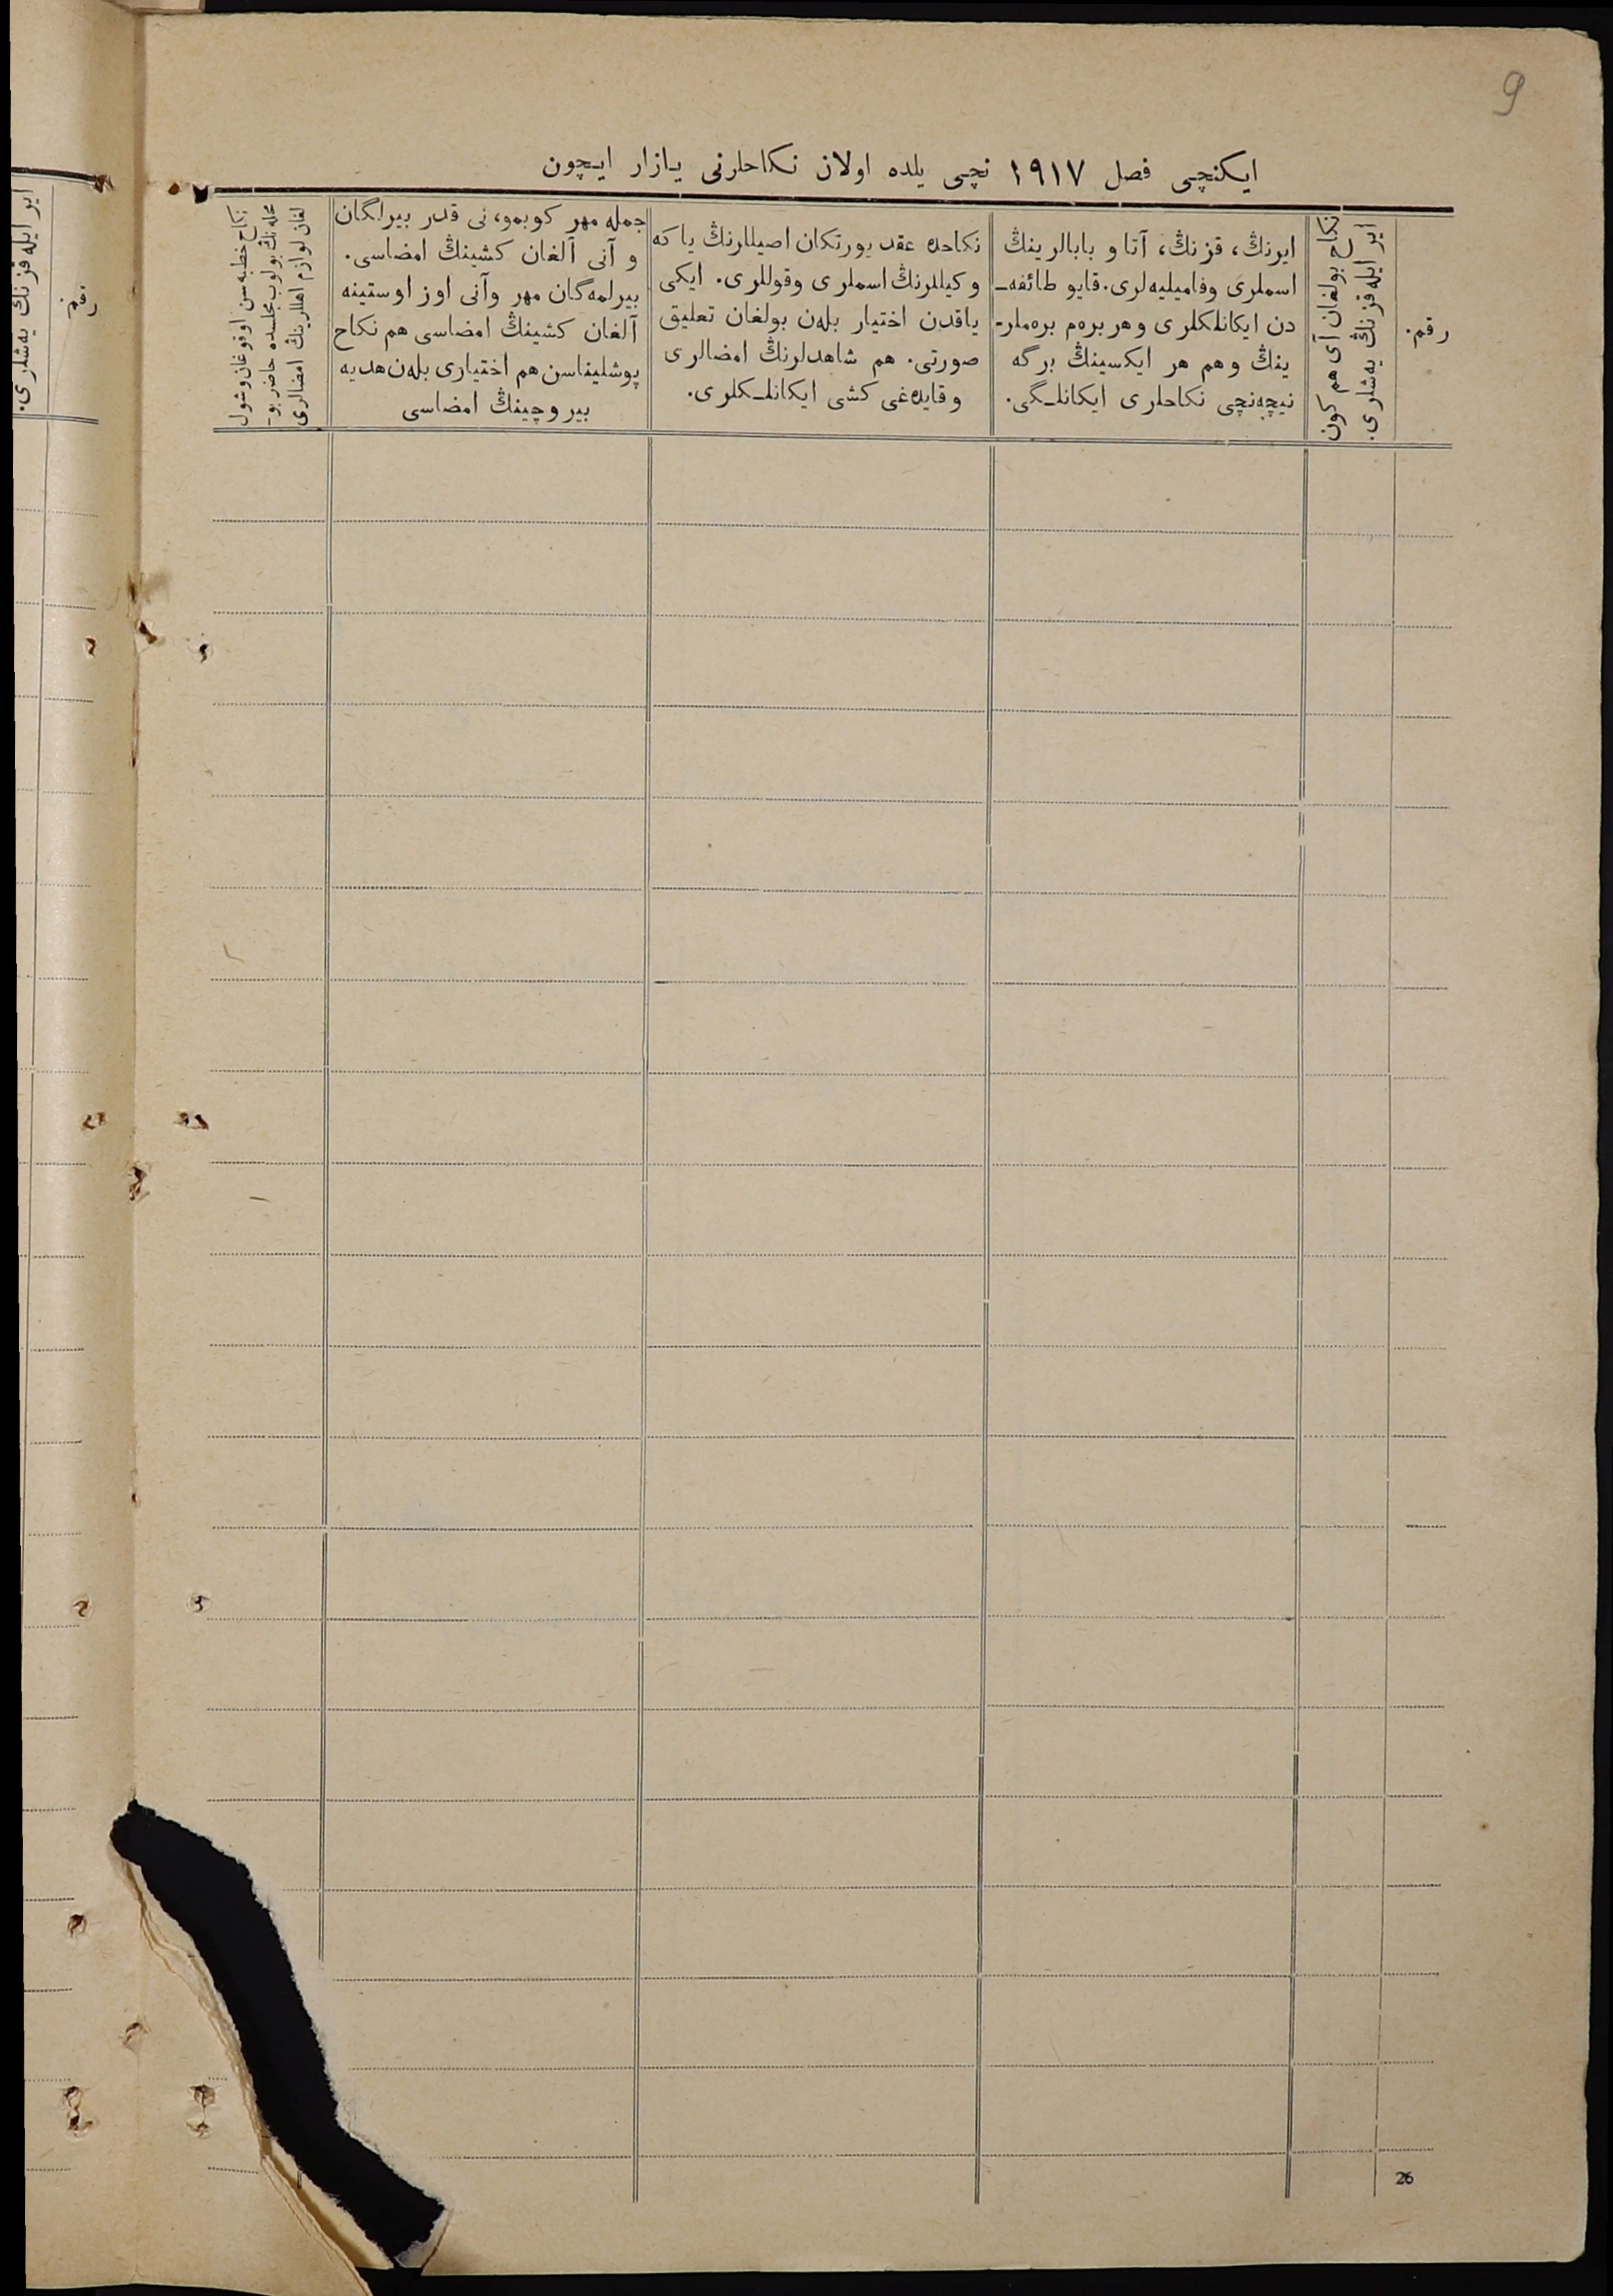 9
ایکنچی فصل ١٩١٧ نچی یلده اولان نکاحلرنی یازار ایچون
رقم.
نکاح بولغان آی هم کون
ایر ایله قزنڭ یه‌شلری.
ایرنڭ، قزنڭ، آتا و بابالرینڭ
اسملری وفامیلیه‌لری. قایو طائفه‌ـ
دن ایکانلکلری و هر بره‌م بره‌ملرـ
ینڭ وهم هر ایکسینڭ برگه
نیچه‌نچی نکاحلری ایکانلـگی.
نکاحده عقد یورتکان اصیللرنڭ یا که
وکیللرنڭ اسملری وقوللری. ایکی
یاقدن اختیار بله‌ن بولغان تعلیق
صورتی. هم شاهدلرنڭ امضالری
وقایده‌غی کشی ایکانلـکلری.
جمله مهر کوبمو، نی قدر بیرلگان
و آنی آلغان کشینڭ امضاسی.
بیرلمه‌گان مهر وآنی اوز اوستینه
آلغان کشینڭ امضاسی هم نکاح
پوشلیناسن هم اختیاری بله‌ن هدیه
بیروچینڭ امضاسی
نکاح خطبه‌سن اوقوغان وشول
محله‌نڭ بولوب مجلسده حاضر بوـ
لغان لوازم اهللرینڭ امضالری
رقم.
ایر ایله قزنڭ یه‌شلری.
26